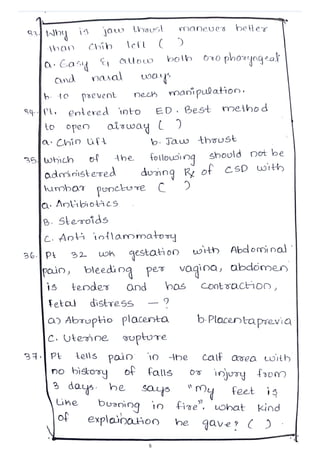 33. Why is jaw thrust maneuer better
than chin left ( )
a. Easy & allow both orophoryngeal
and nasal ways
b. to prevent neck manipulation.
34. Pt. entered into ED. Best method
to open airway ( )
a. Chin lift b. Jaw thrust
35. which of the following should not be
administered during Rx of CSD with
lumbar puncture ( )
a. Antibiotics
B. Steroids
C. Anti inflammatory
36. Pt 32 wk gestation with Abdominal
pain, bleeding per vagina, abdomen
is tender and has contraction,
Fetal distress — ?
a) Abruptio placenta b. Placenta previa
C. Uterine rupture
37. Pt tells pain in the calf area with
no history of falls or injury from
3 days. he says "My feet is
like burning in fire". what kind
of explaination he gave? ( )